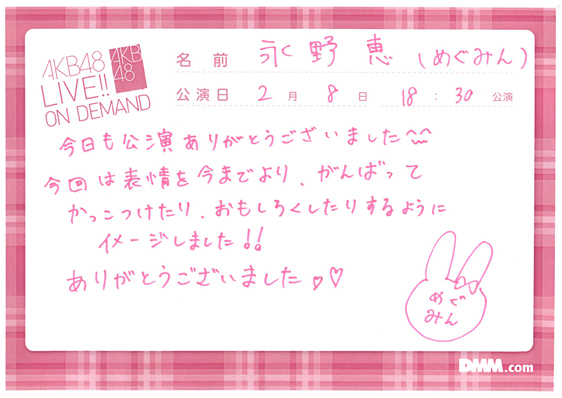 AKB48
LIVE!!
ON DEMAND
AKB
48
名前 永野恵(めぐみん)
公演日 2月8日 18:30公演
今日も公演ありがとうございました
今回は表情を今までより、がんばって
かっこつけたり、おもしろくしたりするように
イメージしました!!
ありがとうございました♡♡
めぐ
みん
DMM.com